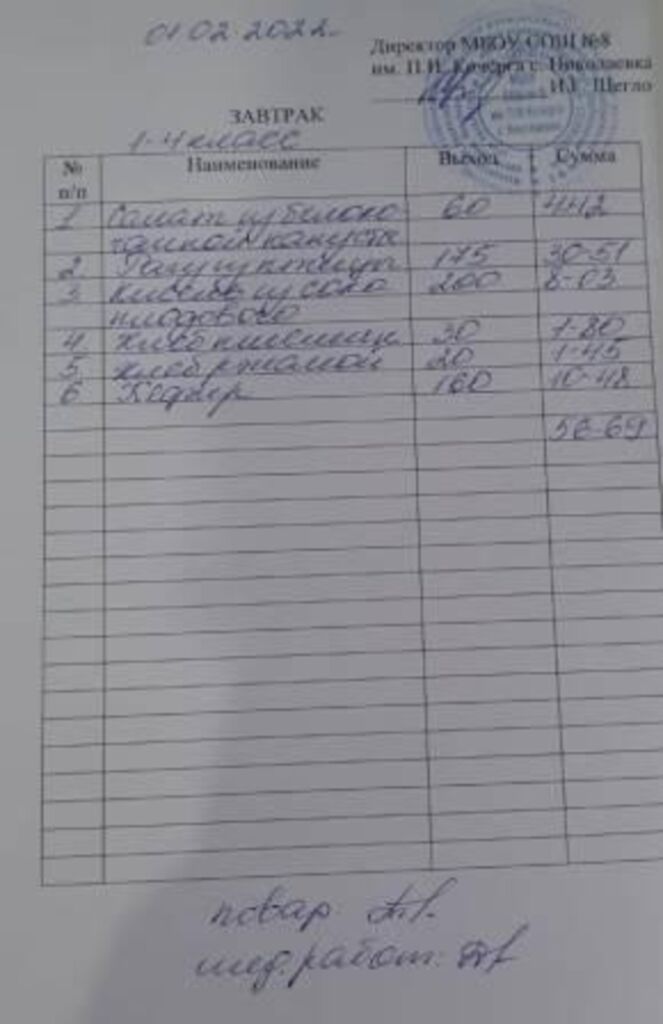 01.02.2022г.
Директор МБОУ СОШ №8
им. П.И. Кочерга с. Николаевка
И.Г. Щегло
ЗАВТРАК
1-4 класс
№ п/п Наименование Выход Сумма
1 Салат из белоко- 60 4-42
чанной капусты
2. Рагу из птицы 175 30-51
3 Кисель из соко 200 8-03
плодового
4 Хлеб пшенич 30 1-80
5 Хлеб ржаной 20 1-45
6 Кефир 160 10-48
56-69
повар
мед. работ.